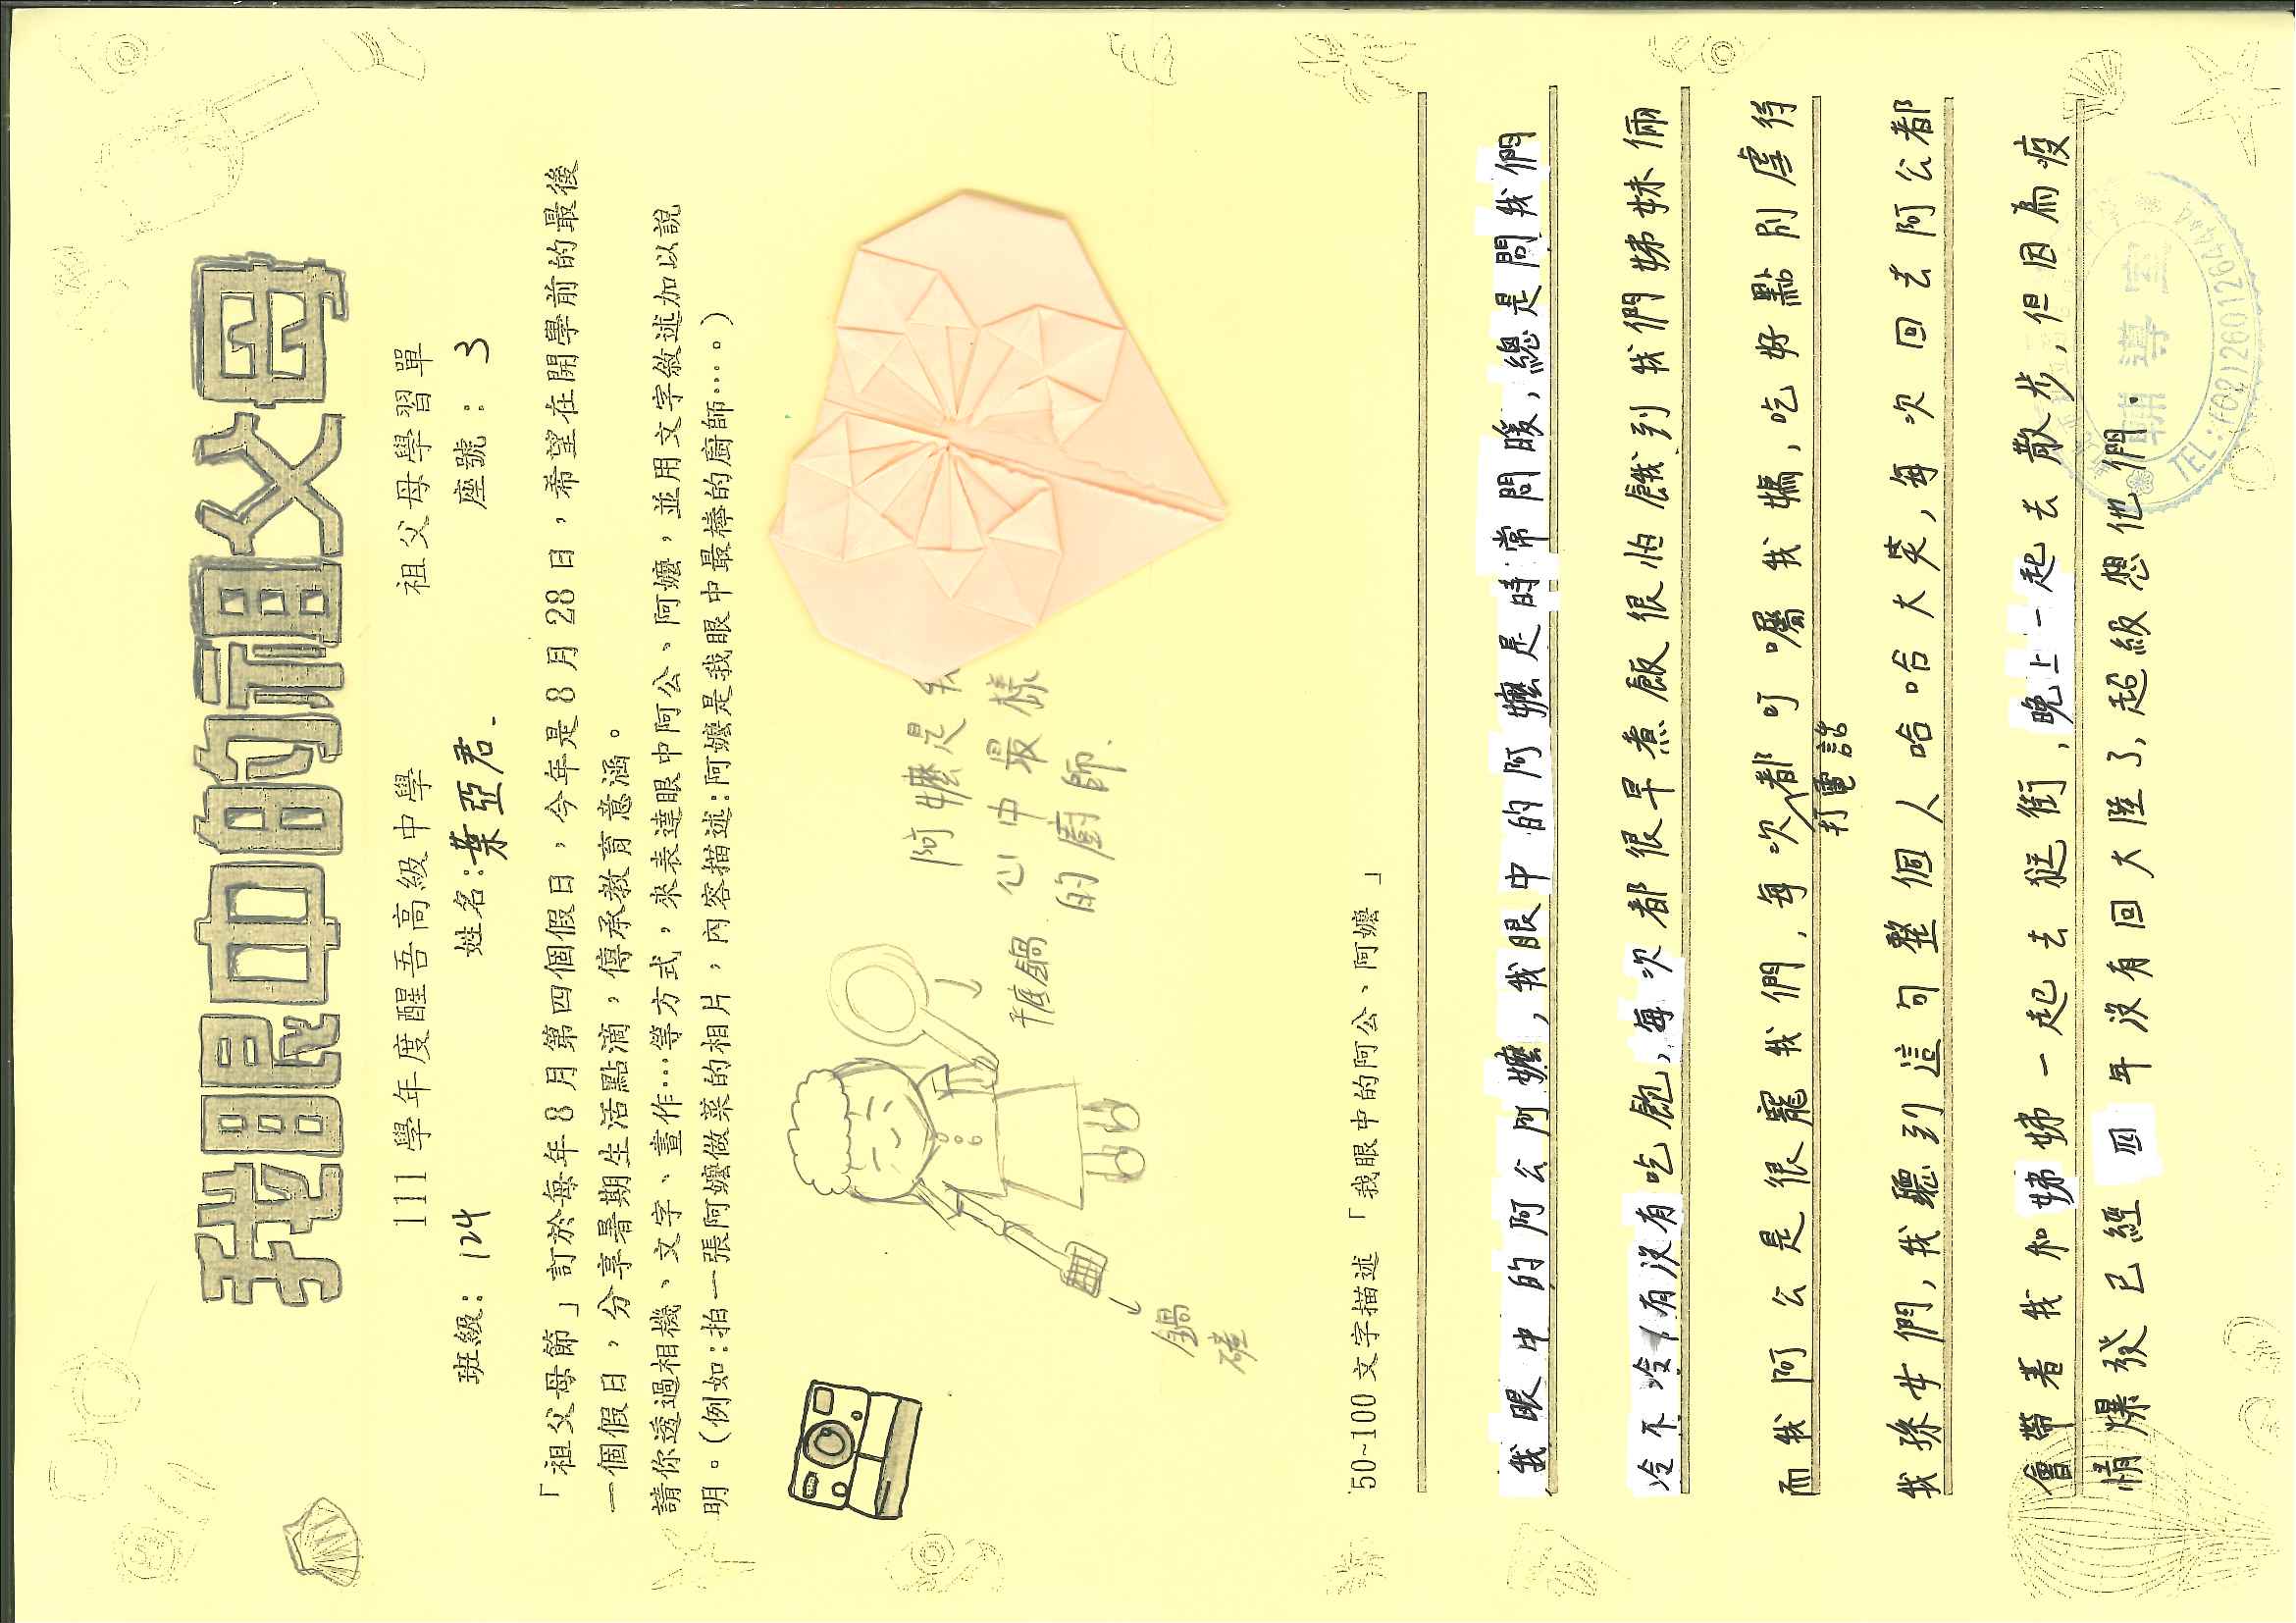 我眼中的祖父母
111 學年度醒吾高級中學　祖父母學習單
班級：124　姓名：葉亞君.　座號：3
「祖父母節」訂於每年8月第四個假日，今年是8月28日，希望在開學前的最後
一個假日，分享暑期生活點滴，傳承教育意涵。
請你透過相機、文字、畫作…等方式，來表達眼中阿公、阿嬤，並用文字敘述加以說
明。(例如：拍一張阿嬤做菜的相片，內容描述：阿嬤是我眼中最棒的廚師…。)
阿嬤是我
心中最樣
的廚師.
鍋
鍋
50~100文字描述「我眼中的阿公、阿嬤」
我眼中的阿公阿嬤，我眼中的阿嬤是時常問暖，總是問我們
冷不冷有沒有吃飽，每次都很早煮飯很怕餓到我們姊妹倆
而我阿公是很寵我們，每次打電話都叮囑我媽，吃好點別虐待
我孫女們，我聽到這句整個人哈哈大笑，每次回去阿公都
會帶著我和姊姊一起去逛街，晚上一起去散步，但因為疫
情爆發已經四年沒有回大陸了，超級想他們.
輔導室
TEL:(02)26012644